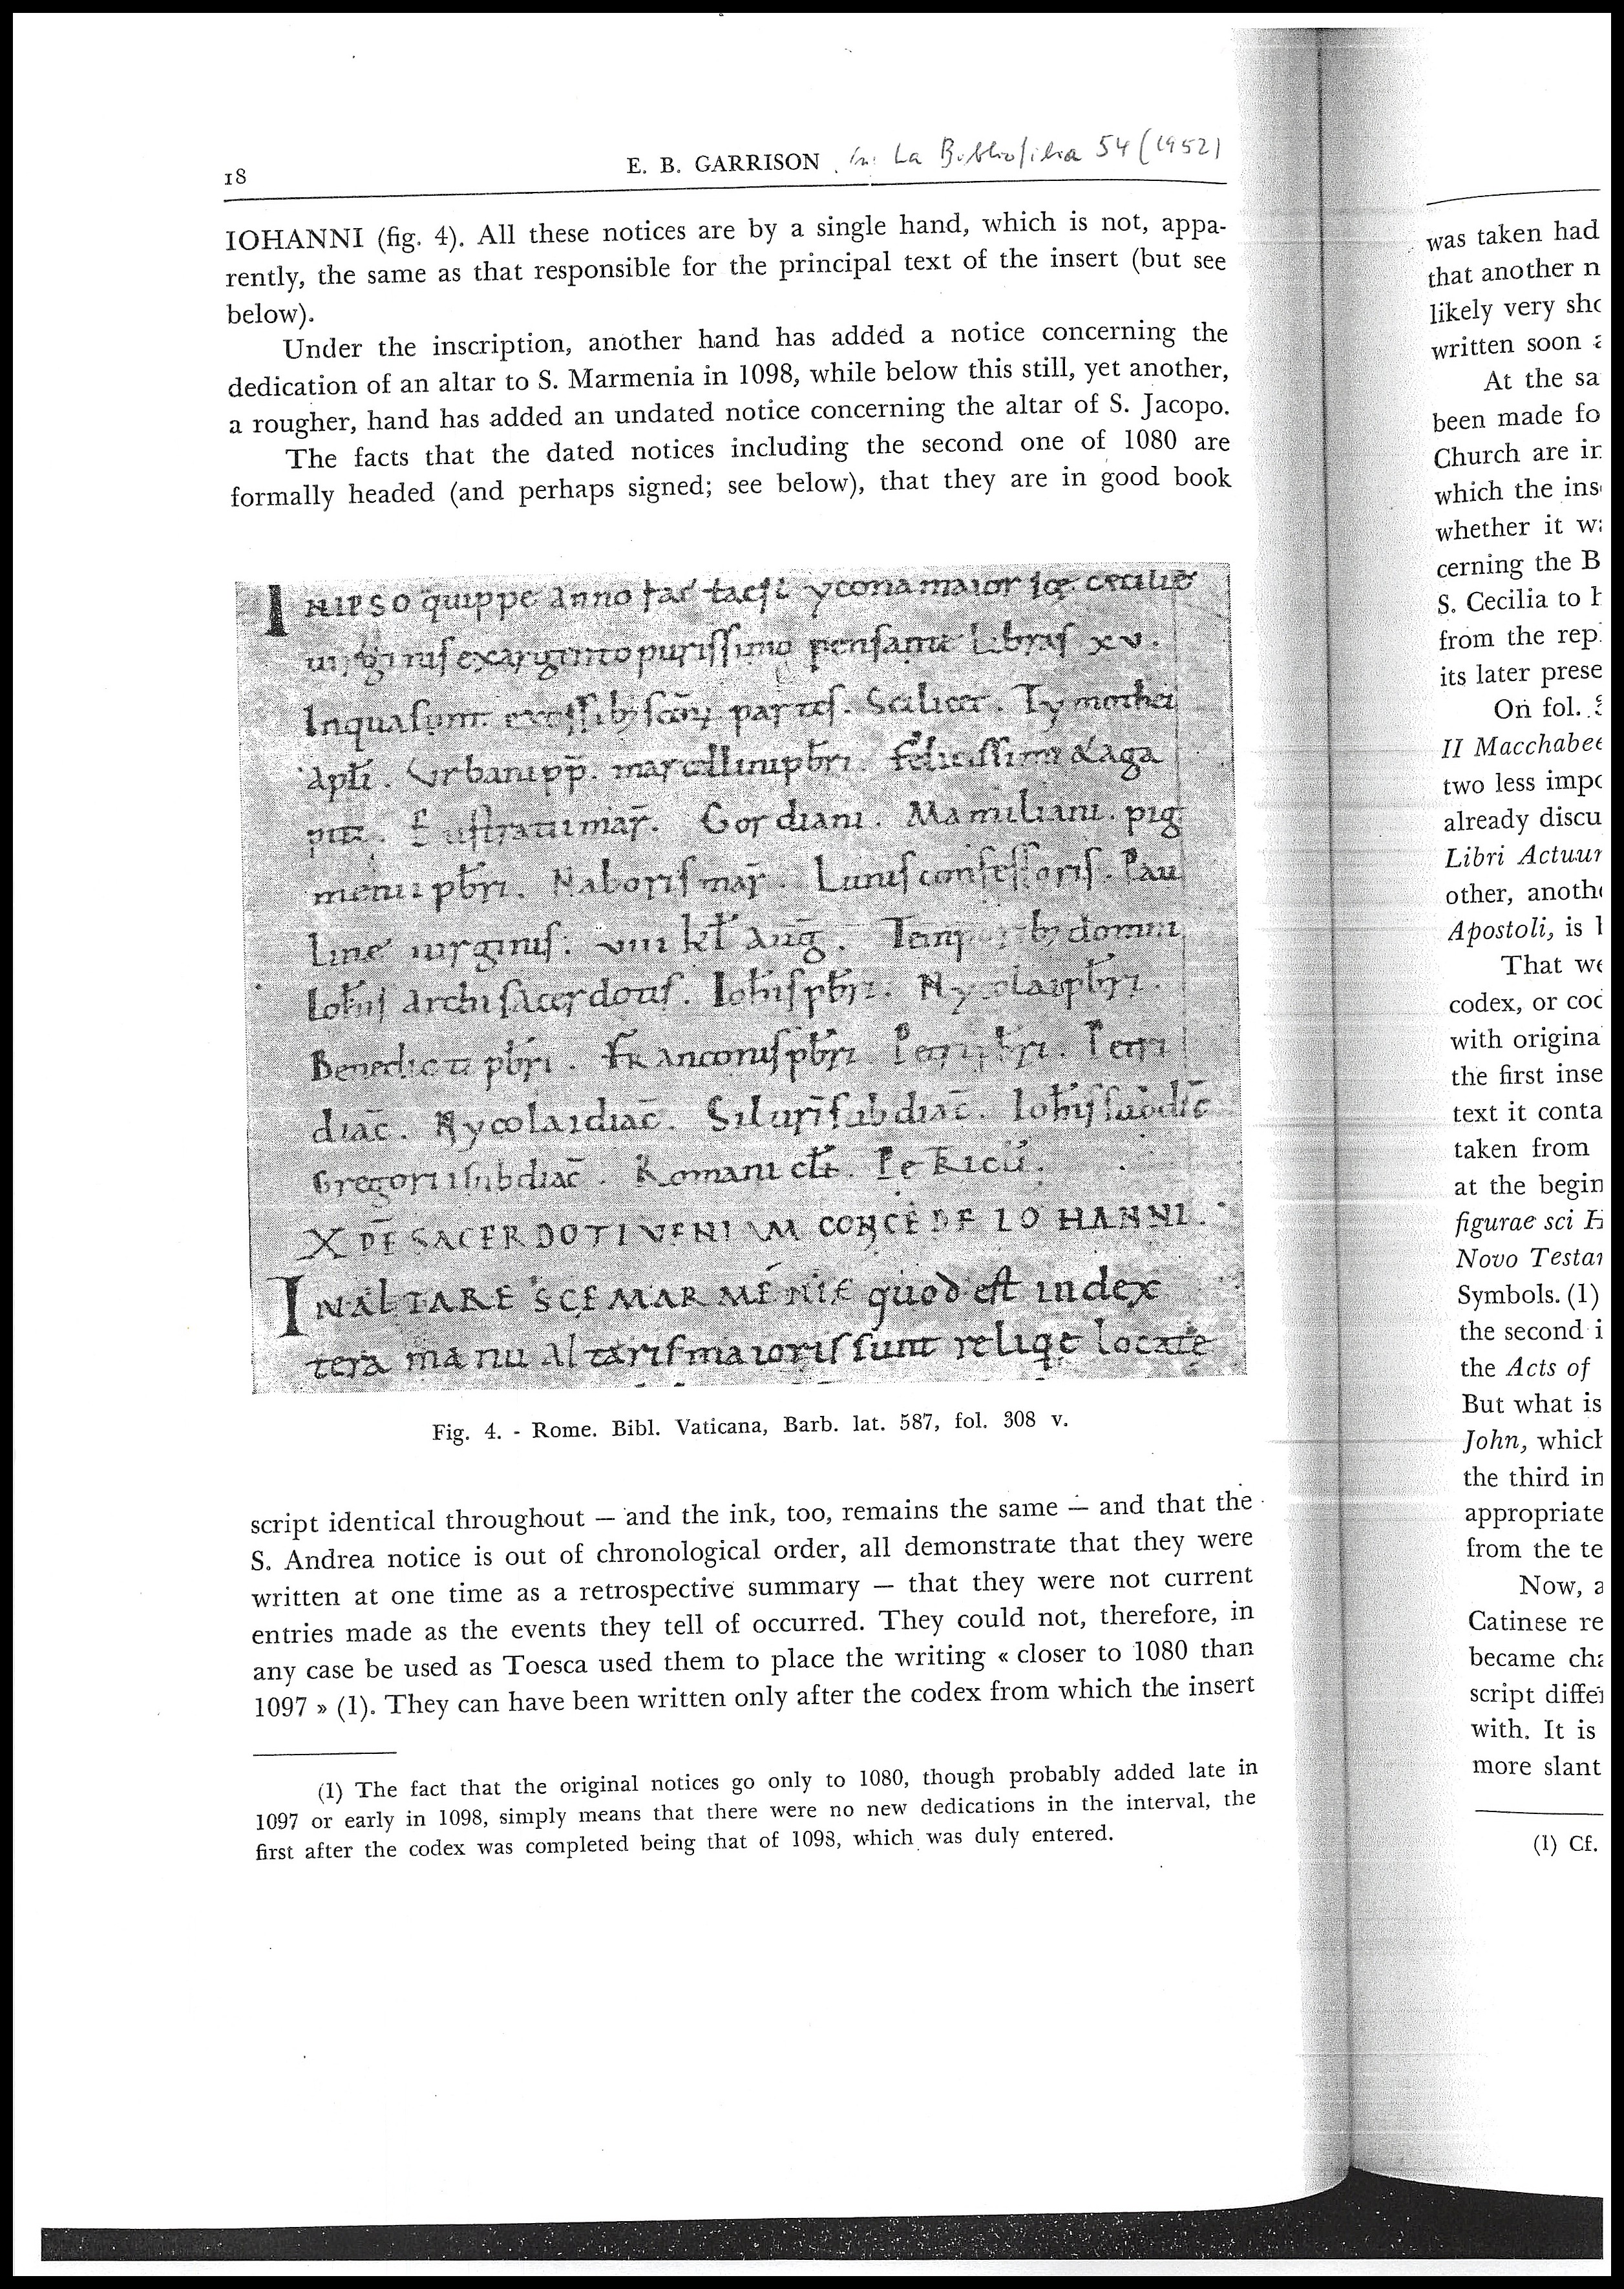 18
E. B. GARRISON In: La Bibliofilia 54 (1952)
IOHANNI (fig. 4). All these notices are by a single hand, which is not, appa-
rently, the same as that responsible for the principal text of the insert (but see
below).
Under the inscription, another hand has added a notice concerning the
dedication of an altar to S. Marmenia in 1098, while below this still, yet another,
a rougher, hand has added an undated notice concerning the altar of S. Jacopo.
The facts that the dated notices including the second one of 1080 are
formally headed (and perhaps signed; see below), that they are in good book
INIPSO quippe anno ycona maior
purissimo libras xv.
partes. Scilicet. Tymothei
apli. Urbani pp. marcellini pbri. felicissimi & aga
mar. Gordiani. Mamiliani. pig
menii pbri. Naboris mar. Lunis confessoris. Pau
line virginis. viii kl aug. domni
Iohis archisacerdotis. Iohis pbri. Nycolai pbri.
Benedicti pbri. Franconis pbri. Petri pbri. Petri
diac. Nycolai diac. subdiac. Iohis subdic
Gregorii subdiac. Romani
XPE SACERDOTI VENIAM CONCEDE IOHANNI.
IN ALTARE SCE MARMENIE quod est in dex
tera manu altaris maioris sunt reliqe locate
Fig. 4. - Rome. Bibl. Vaticana, Barb. lat. 587, fol. 308 v.
script identical throughout — and the ink, too, remains the same — and that the
S. Andrea notice is out of chronological order, all demonstrate that they were
written at one time as a retrospective summary — that they were not current
entries made as the events they tell of occurred. They could not, therefore, in
any case be used as Toesca used them to place the writing « closer to 1080 than
1097 » (1). They can have been written only after the codex from which the insert
(1) The fact that the original notices go only to 1080, though probably added late in
1097 or early in 1098, simply means that there were no new dedications in the interval, the
first after the codex was completed being that of 1098, which was duly entered.
was taken had
that another n
likely very sho
written soon
At the sa
been made fo
Church are in
which the ins
whether it w
cerning the B
S. Cecilia to h
from the rep
its later prese
On fol.
II Macchabee
two less impo
already discu
Libri Actuu
other, anoth
Apostoli, is
That we
codex, or coc
with origina
the first inse
text it conta
taken from
at the begin
figurae sci
Novo Testa
Symbols. (1)
the second i
the Acts of
But what is
John, which
the third in
appropriate
from the te
Now, a
Catinese re
became cha
script differ
with. It is
more slant
(1) Cf.